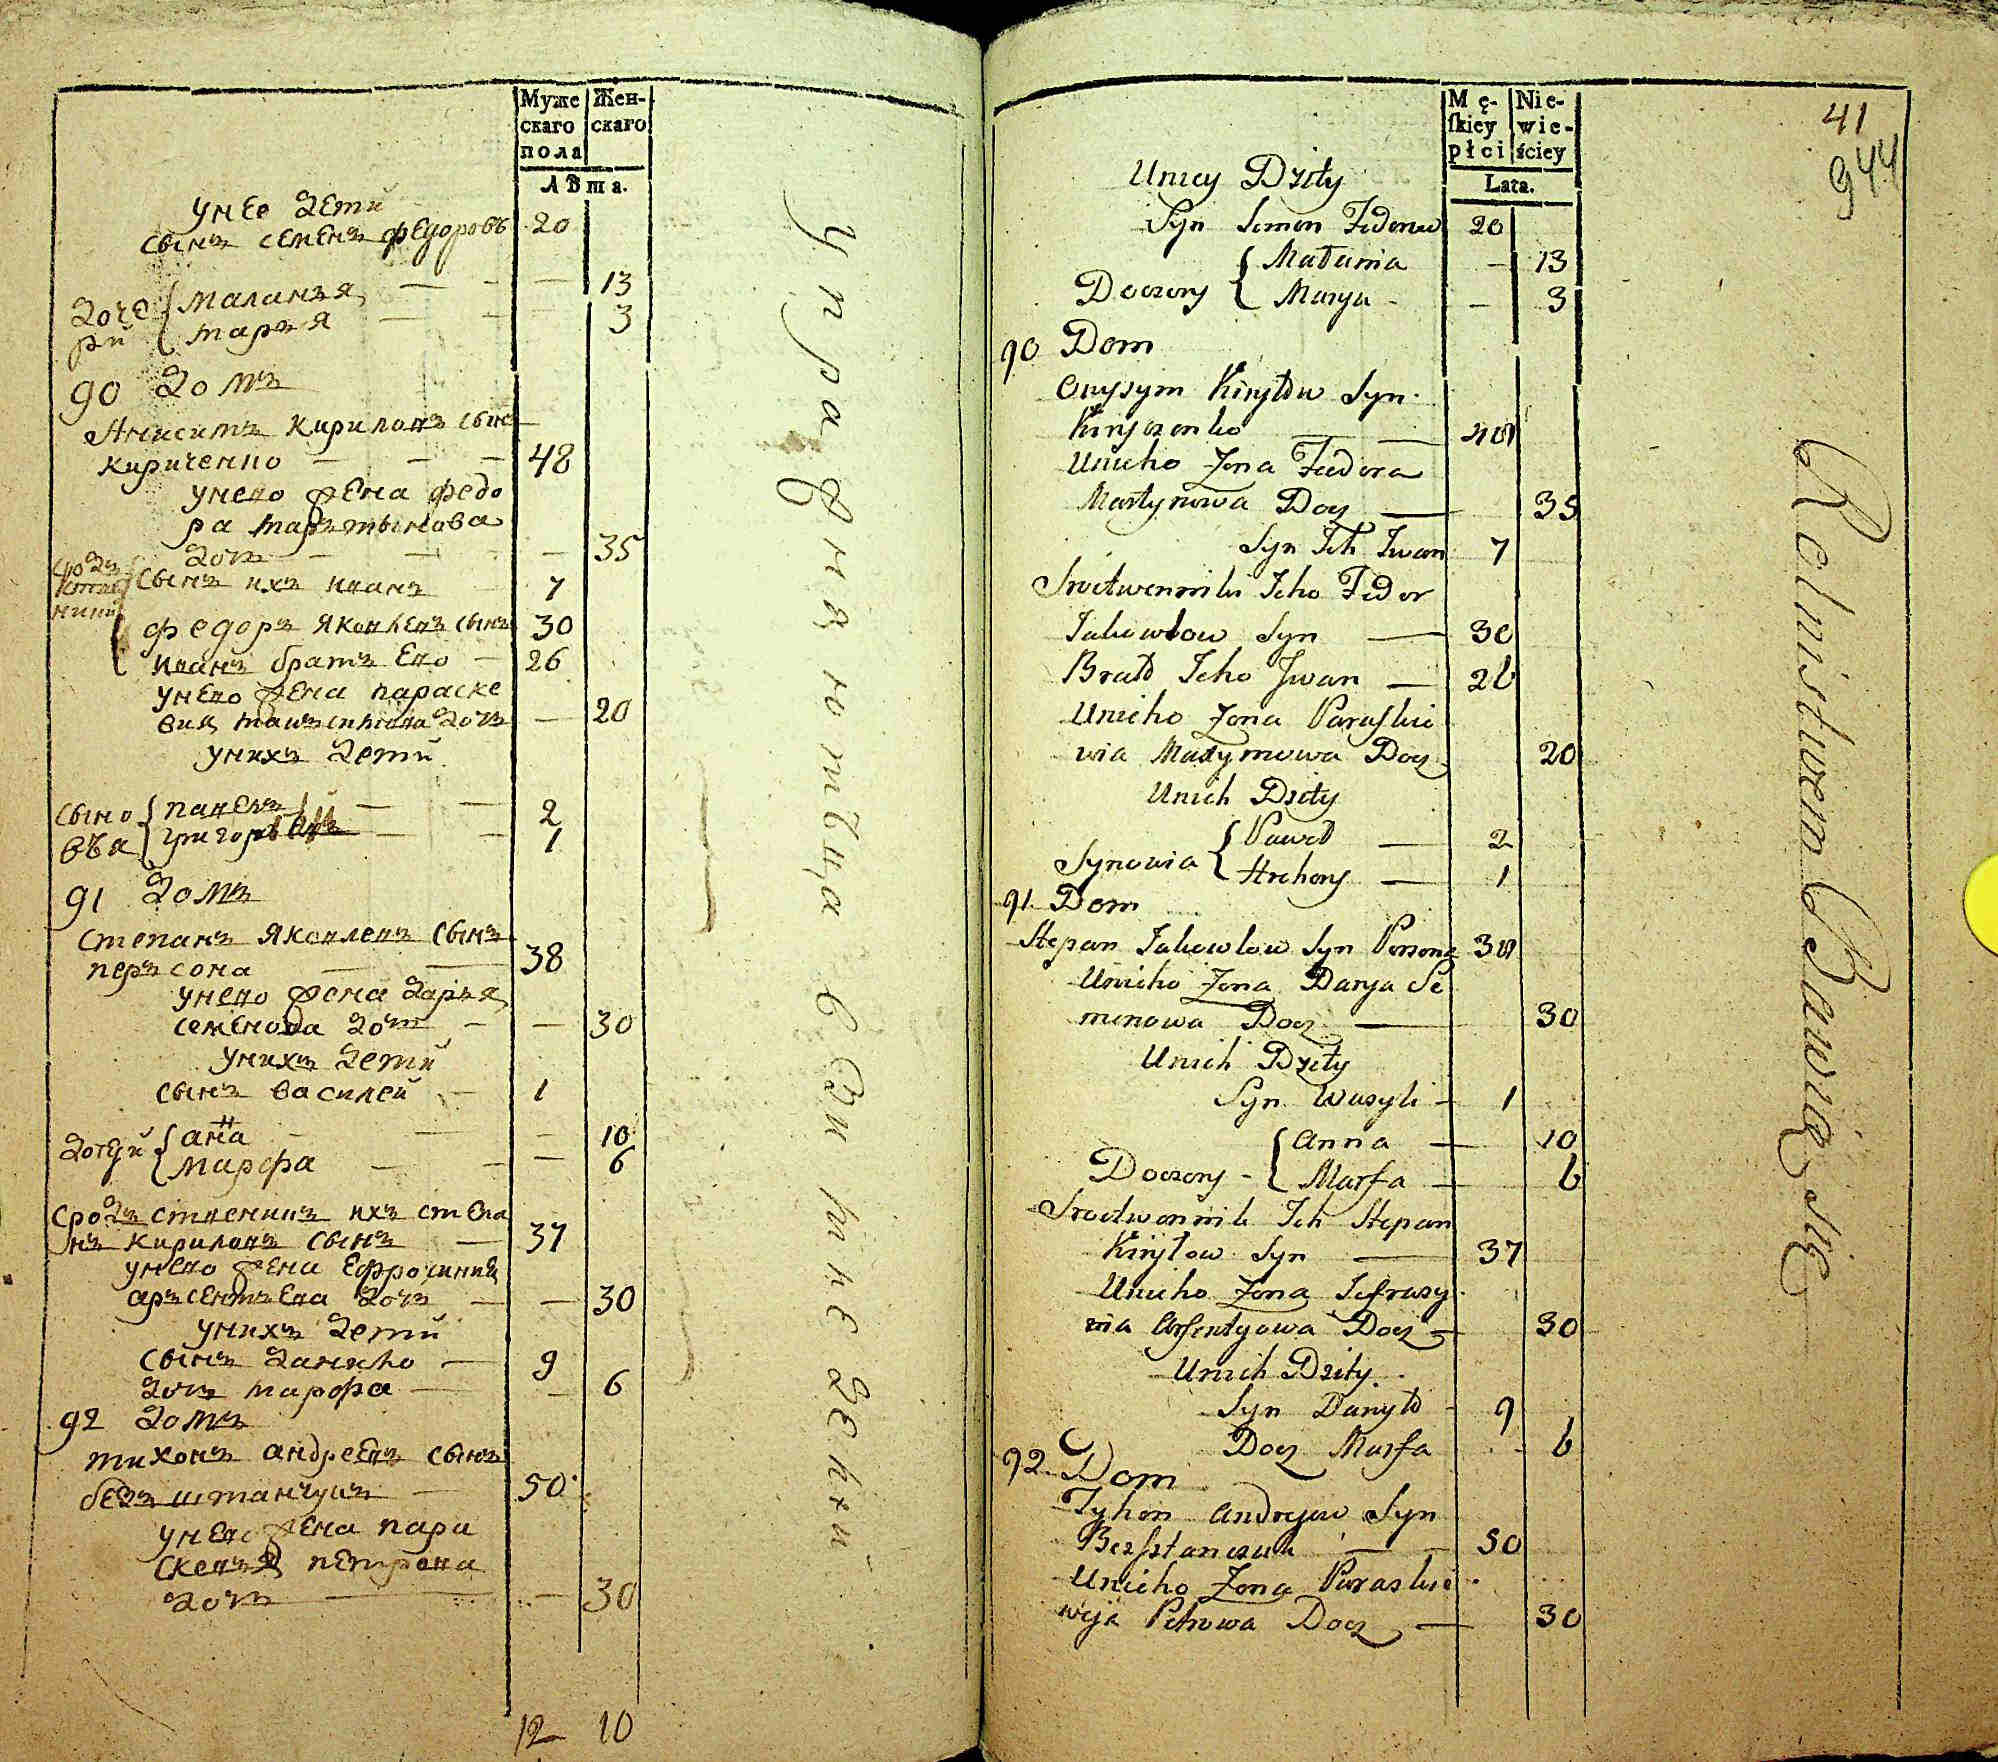 Муже
скаго
пола
Жен-
скаго
Лѣта.
унее дети
сынъ семенъ федоровъ 20
доче
ри
маланья — — — 13
марья — — — 3
90 домъ
Анисимъ кириловъ сынъ
кириченко — — — 48
унево жена федо
ра мартынова
дочь — — — 35
сынъ ихъ иванъ 7
федоръ яковлевъ сынъ 30
иванъ братъ ево — 26
унево жена параске
вия дочь — 20
унихъ дети
сыно
вья
павелъ — — 2
григорей — — 1
91 домъ
степанъ яковлевъ сынъ
персона — — 38
унево жена дарья
семенова дочь — — 30
унихъ дети
сынъ василей — 1
дочери
анна — — — 10
марфа — — — 6
сродственникъ ихъ степа
нъ кириловъ сынъ — 37
унево жена ефросиния
арсентьева дочь — — 30
унихъ дети
сынъ данило — 9
дочь марфа — — 6
92 домъ
тихонъ андреевъ сынъ
безштанчукъ — 50
унево жена пара
скевья петрова
дочь — — 30
12 10
упражняютца в
Mę-
ſkiey
płci
Nie-
wie-
ściey
Lata.
41
944
Uniey Dzity
Syn Semen Fedorow 20
Doczery
Małania — 13
Marya — 3
90 Dom
Onysym Kiryłow Syn
Kiryczenko — — 48
Unieho Żona Feedora
Martynowa Docz — 35
Syn Ich Iwan 7
Srodtwenniki Jeho Fedor
Jakowlow Syn — 30
Bratt Jeho Iwan — 26
Unieho Żona Paraskie
wia Maxymowa Docz 20
Unich Dzity
Synowia
Paweł — 2
Hrehory — 1
91 Dom
Stepan Jakowlow Syn Persona 38
Unieho Żona Darya Se
menowa Docz — 30
Unich Dzity
Syn Wasyli — 1
Doczery
Anna — 10
Marfa — 6
Srodtwennik Ich Stepan
Kiryłow Syn — 37
Unieho Żona Jefrosy
nia Arsentyowa Docz — 30
Unich Dzity
Syn Danyło 9
Docz Marfa 6
92 Dom
Tyhon Andrejow Syn
Bezsztanczuk — — 50
Unieho Żona Paraskie
wija Petrowa Docz — 30
Rolnistwem Bawią się